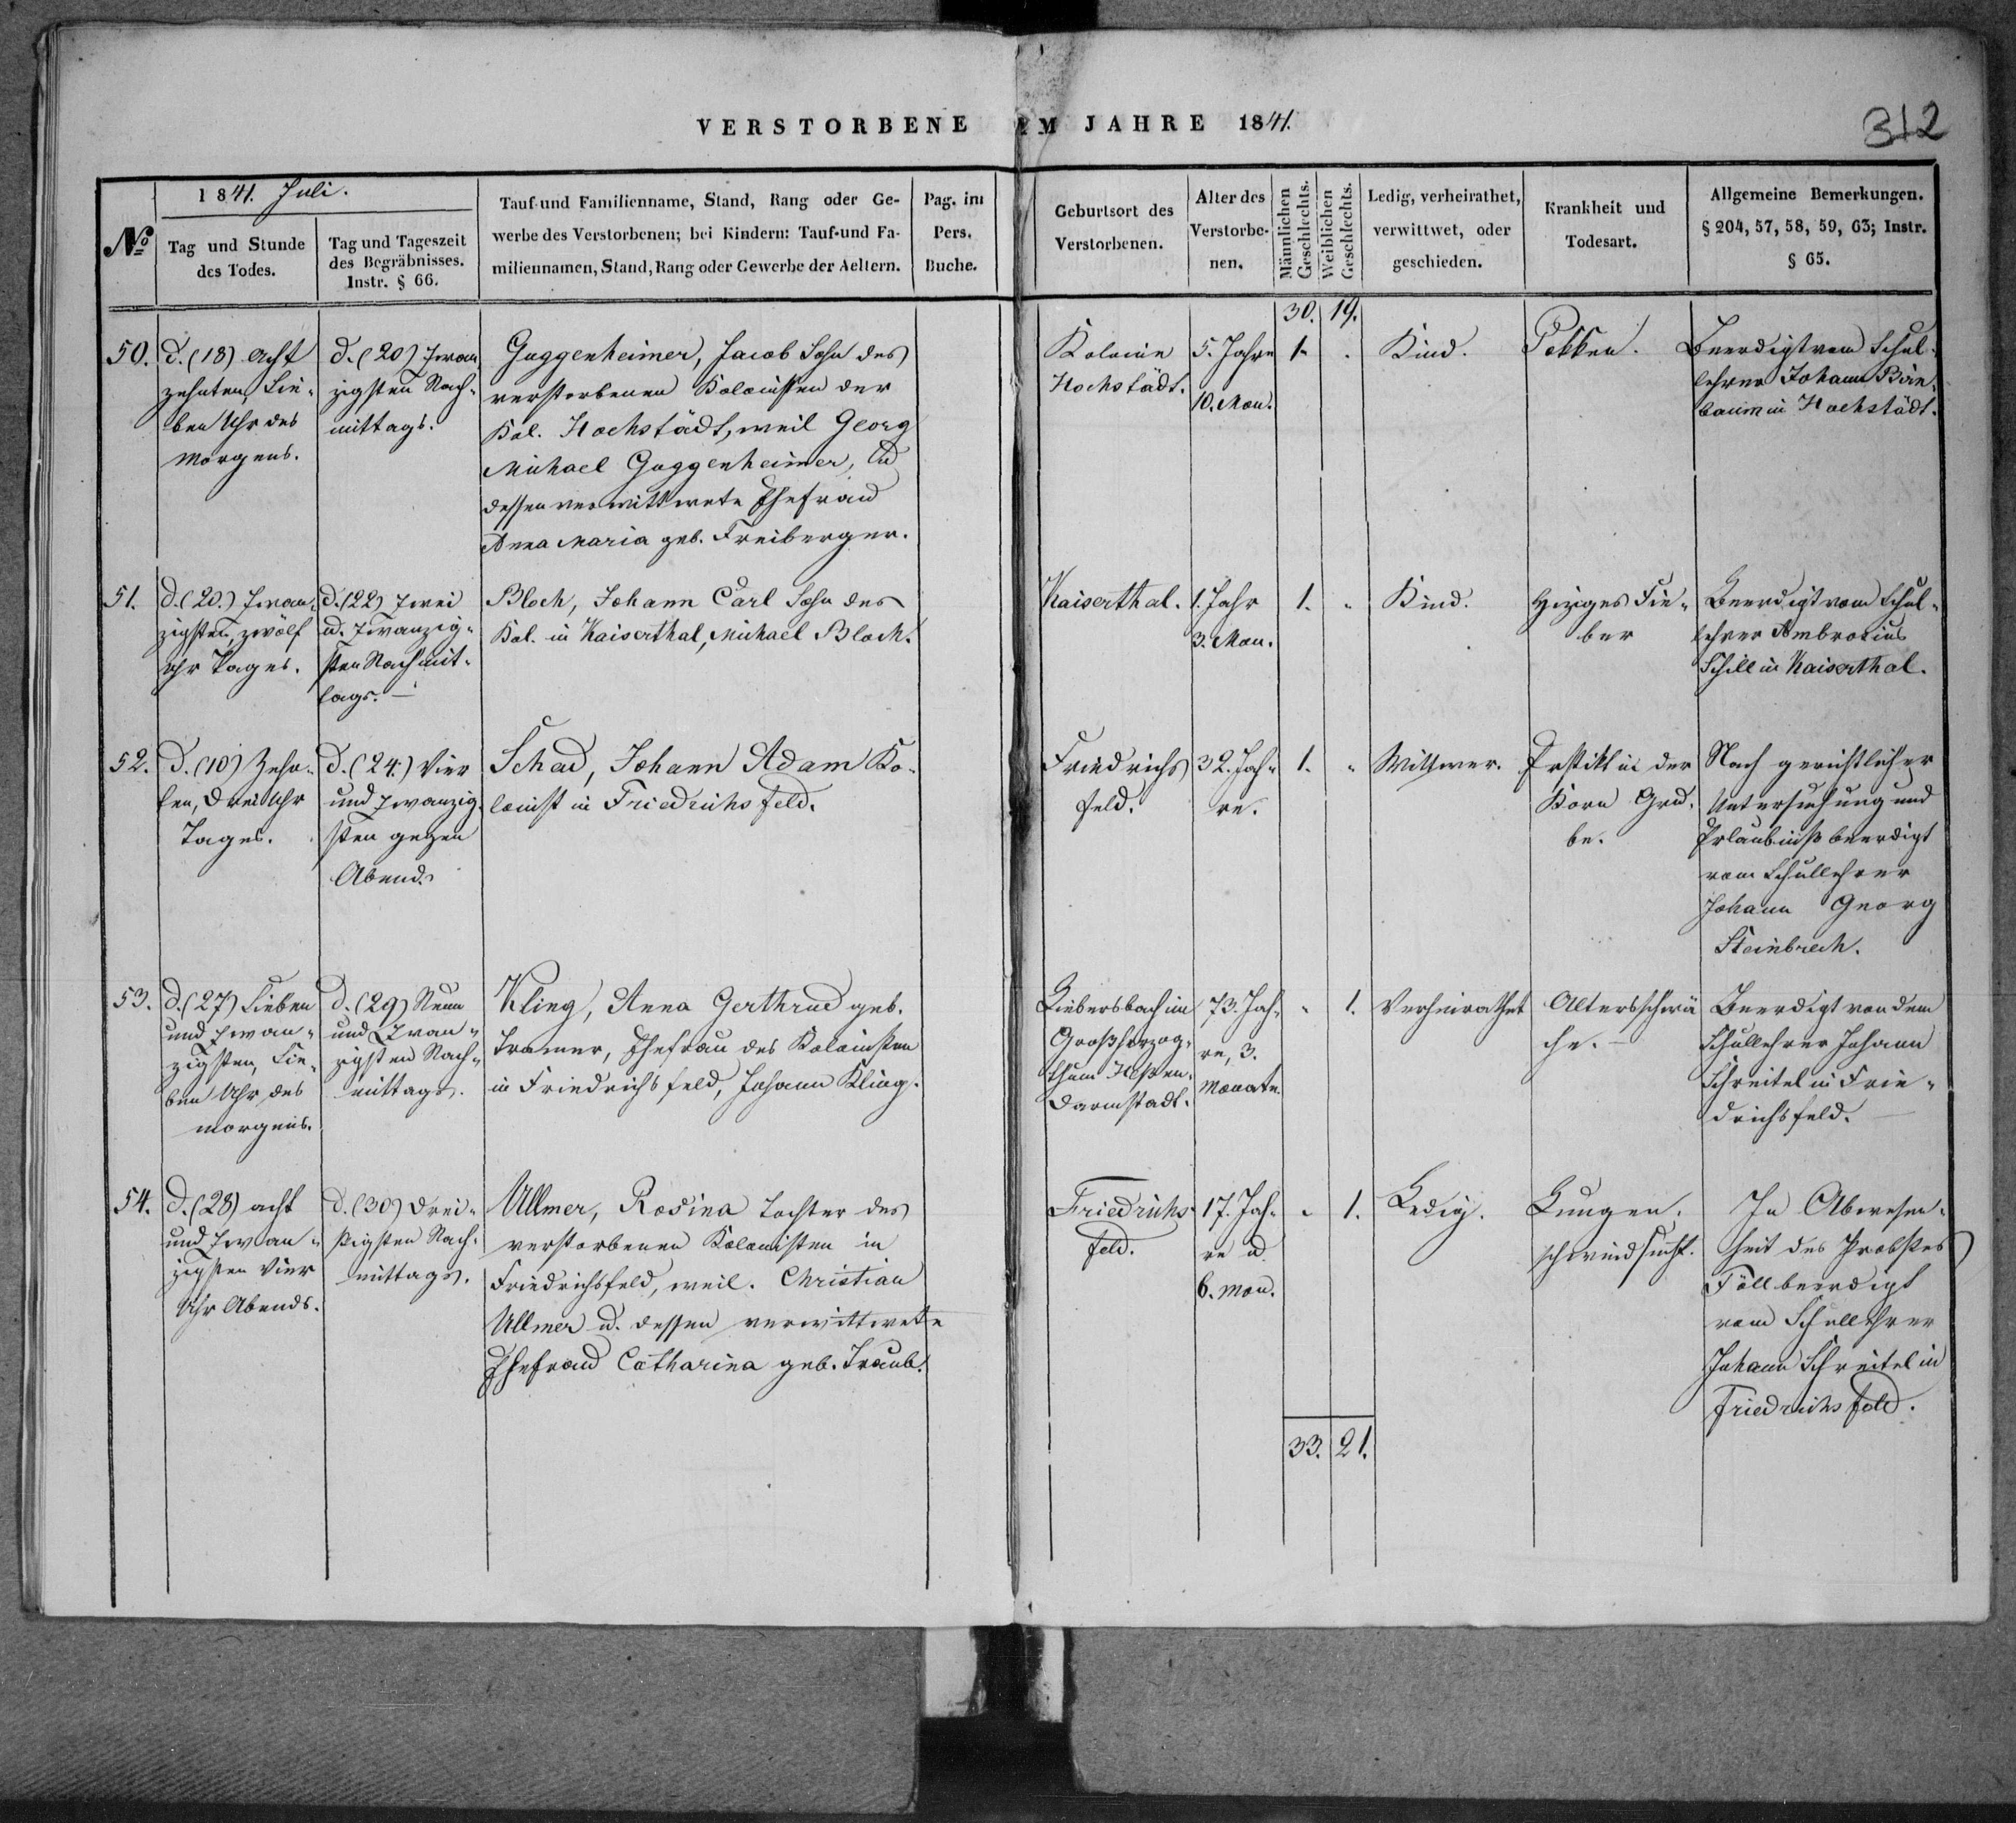 VERSTORBENE IM JAHRE 1841.
312
1841. Juli.
No
Tag und Stunde
des Todes.
Tag und Tageszeit
des Begräbnisses.
Instr. § 66.
Tauf- und Familienname, Stand, Rang oder Ge-
werbe des Verstorbenen; bei Kindern: Tauf- und Fa-
miliennamen, Stand, Rang oder Gewerbe der Aeltern.
Pag. im
Pers.
Buche.
Geburtsort des
Verstorbenen.
Alter des
Verstorbe-
nen.
Männlichen
Geschlechts.
Weiblichen
Geschlechts.
Ledig, verheirathet,
verwittwet, oder
geschieden.
Krankheit und
Todesart.
Allgemeine Bemerkungen.
§ 204, 57, 58, 59, 63; Instr.
§ 65.
30. 19.
50.
d. (18) Acht
zehnten, Sie-
ben Uhr des
Morgens.
d. (20) Zwan
zigsten Nach-
mittags.
Guggenheimer, Jacob Sohn des
verstorbenen Kolonisten der
Kol. Hochstädt, weil Georg
Michael Guggenheimer, u
dessen verwittwete Ehefrau
Anna Maria geb. Freiberger.
Kolonie
Hochstädt.
5. Jahre
10. Mon.
1.
Kind.
Pokken.
Beerdigt vom Schul-
lehrer Johann Birn-
baum in Hochstädt.
51.
d. (20.) Zwan-
zigsten, zwölf
Uhr Tages.
d. (22) Zwei
u. Zwanzig-
sten Nachmit-
tags. —
Bloch, Johann Carl Sohn des
Kol. in Kaiserthal, Michael Bloch.
Kaiserthal.
1. Jahr
3. Mon.
1. "
Kind.
Hiziges Fie-
ber
Beerdigt vom Schul-
lehrer Ambrosius
Schill in Kaiserthal.
52.
d. (10) Zehn-
ten, Drei Uhr
Tages.
d. (24.) Vier
und Zwanzig-
sten gegen
Abend.
Schad, Johann Adam Ko-
lonist in Friedrichsfeld.
Friedrichs
feld.
32. Jah-
re.
1. "
Wittwer.
Erstikt in der
Korn Gru-
be.
Nach gerichtlicher
Untersuchung und
Erlaubniß beerdigt
vom Schullehrer
Johann Georg
Steinbrech.
53.
d. (27) Sieben
und Zwan-
zigsten, Sie-
ben Uhr des
Morgens.
d. (29) Neun
und Zwan-
zigsten Nach-
mittags.
Kling, Anna Gerthrud geb.
Tramer, Ehefrau des Kolonisten
in Friedrichsfeld, Johann Kling.
Liebersbach im
Großherzog-
thum Heßen-
Darmstadt.
73. Jah-
re, 3.
Monate.
" 1.
Verheirathet
Altersschwä
che. —
Beerdigt von dem
Schullehrer Johann
Schreitel in Frie-
drichsfeld. —
54.
d. (28) acht
und Zwan-
zigsten Vier
Uhr Abends.
d. (30) Drei-
ßigsten Nach-
mittags.
Ullmer, Rosina Tochter des
verstorbenen Kolonisten in
Friedrichsfeld, weil. Christian
Ullmer u. dessen verwittwete
Ehefrau Catharina geb. Traub.
Friedrichs-
feld.
17. Jah-
re u
6. Mon.
" 1.
Ledig.
Lungen-
schwindsucht.
In Abwesen-
heit des Probstes
Föll beerdigt
vom Schullehrer
Johann Schreitel in
Friedrichsfeld.
33. 21.